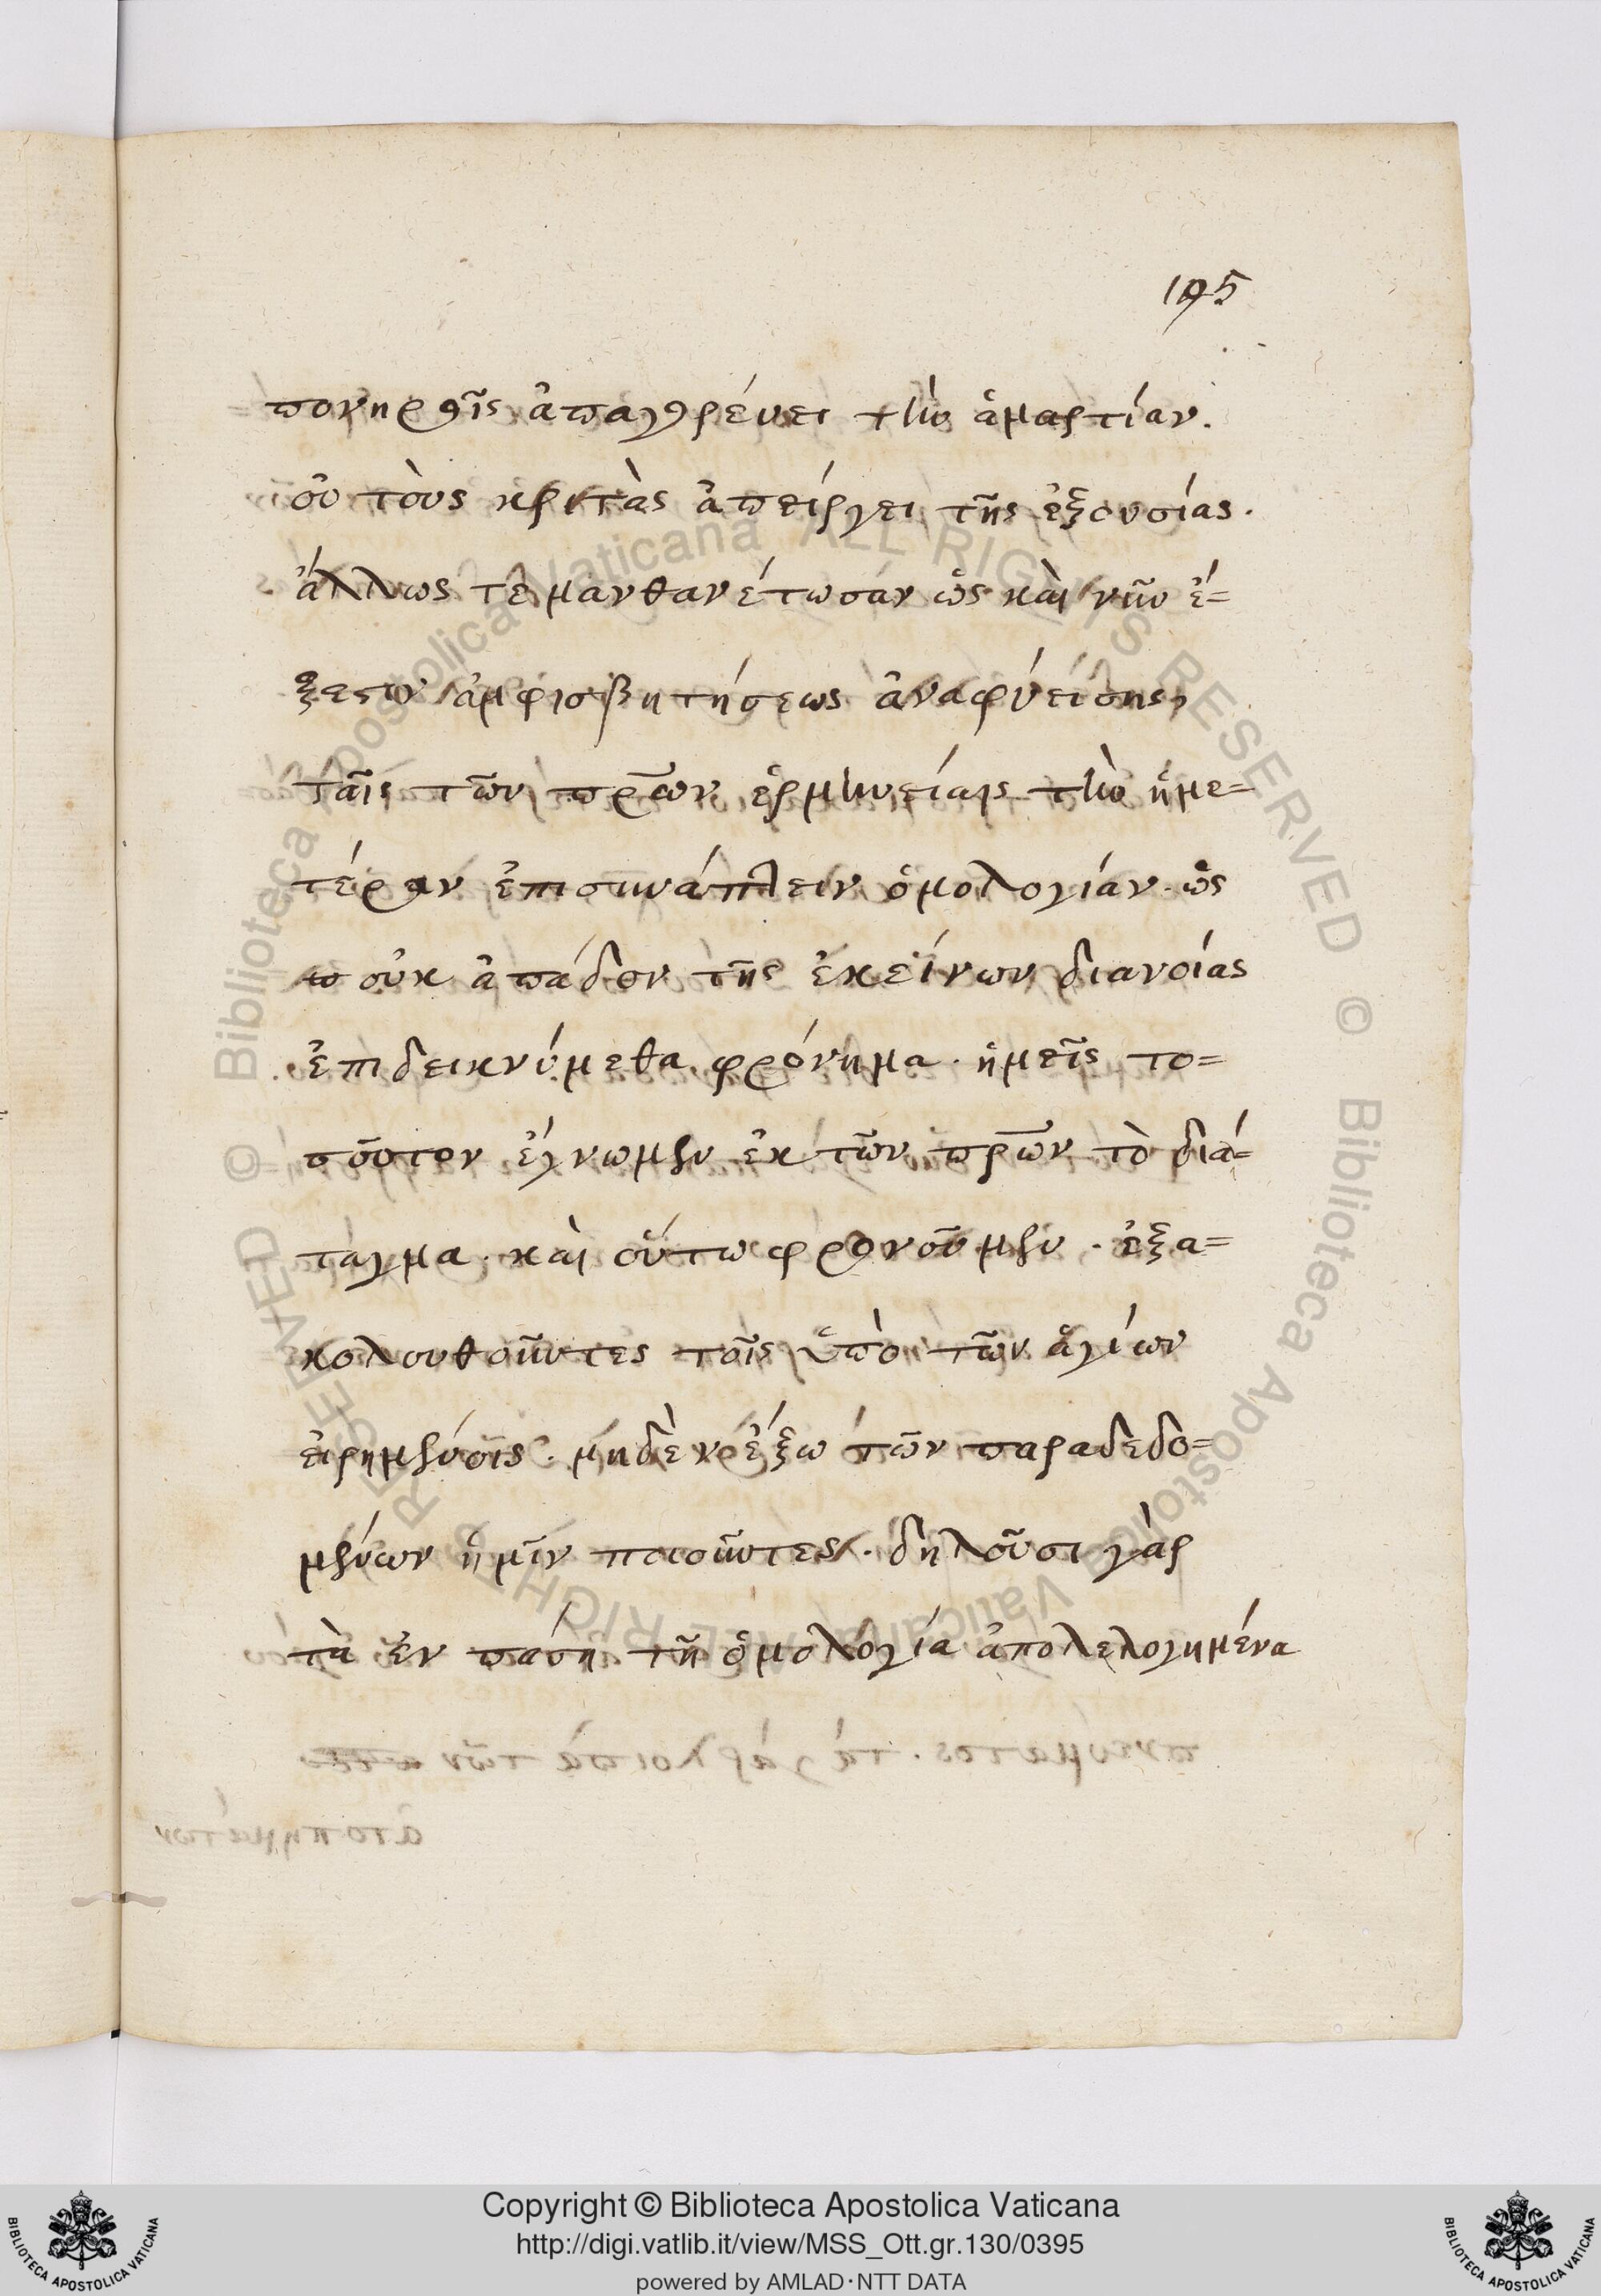 195
πονηροῖς ἀπαγορέυει τὴν ἁμαρτίαν.
οὐ τοὺς κριτὰς ἀπείργει τῆς ἐξουσίας.
ἄλλως τε μανθανέτωσαν ὡς καὶ νῦν ἔ=
ξεστιν ἀμφισβητήσεως ἀναφύεισης,
ταῖς τῶν πρ̅ων ἑρμηνείαις τὴν ἡμε=
τέραν ἐπισυνάπτειν ὁμολογίαν. ὡς
οὐκ ἀπάδον τῆς ἐκείνων διανοίας
ἐπιδεικνύμεθα φρόνημα. ἡμεῖς το=
σοῦτον ἔγνωμεν ἐκ τῶν πρ̅ων τὸ διά=
ταγμα. καὶ οὕτω φρονοῦμεν. ἐξα=
κολουθοῦντες τοῖς ὑπὸ τῶν ἁγίων
εἰρημένοις. μηδὲν ἔξω τῶν παραδεδο=
μένων ἡμῖν ποιοῦντες. δηλοῦσι γὰρ
τὰ ἐν πάσῃ τῇ ὁμολογία ἀπολελογημένα
© Biblioteca Apostolica Vaticana ALL RIGHTS RESERVED © Biblioteca Apostolica Vaticana ALL RIGHTS RESERVED
Copyright © Biblioteca Apostolica Vaticana
http://digi.vatlib.it/view/MSS_Ott.gr.130/0395
powered by AMLAD·NTT DATA
BIBLIOTECA APOSTOLICA VATICANA
BIBLIOTECA APOSTOLICA VATICANA